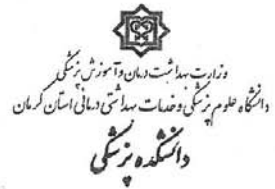 وزارت بهداشت درمان و آموزش پزشکی
دانشگاه علوم پزشکی و خدمات بهداشتی درمانی استان کرمان
دانشکده پزشکی